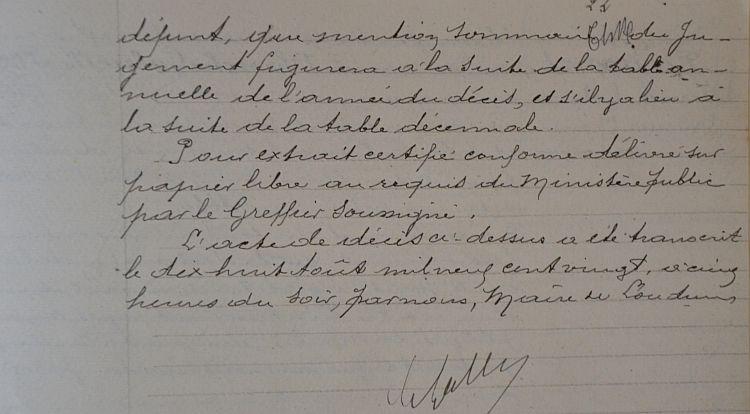 22
défunt, que mention sommaire du Ju-
gement figurera à la suite de la table an-
nuelle de l'année du décès, et s'il y a lieu à
la suite de la table décennale.
Pour extrait certifié conforme délivré sur
papier libre au requis du Ministère public
par le Greffier soussigné.
L'acte de décès ci-dessus a été transcrit
le dix huit Août mil neuf cent vingt, à cinq
heures du soir, par nous, Maire de Loudun,